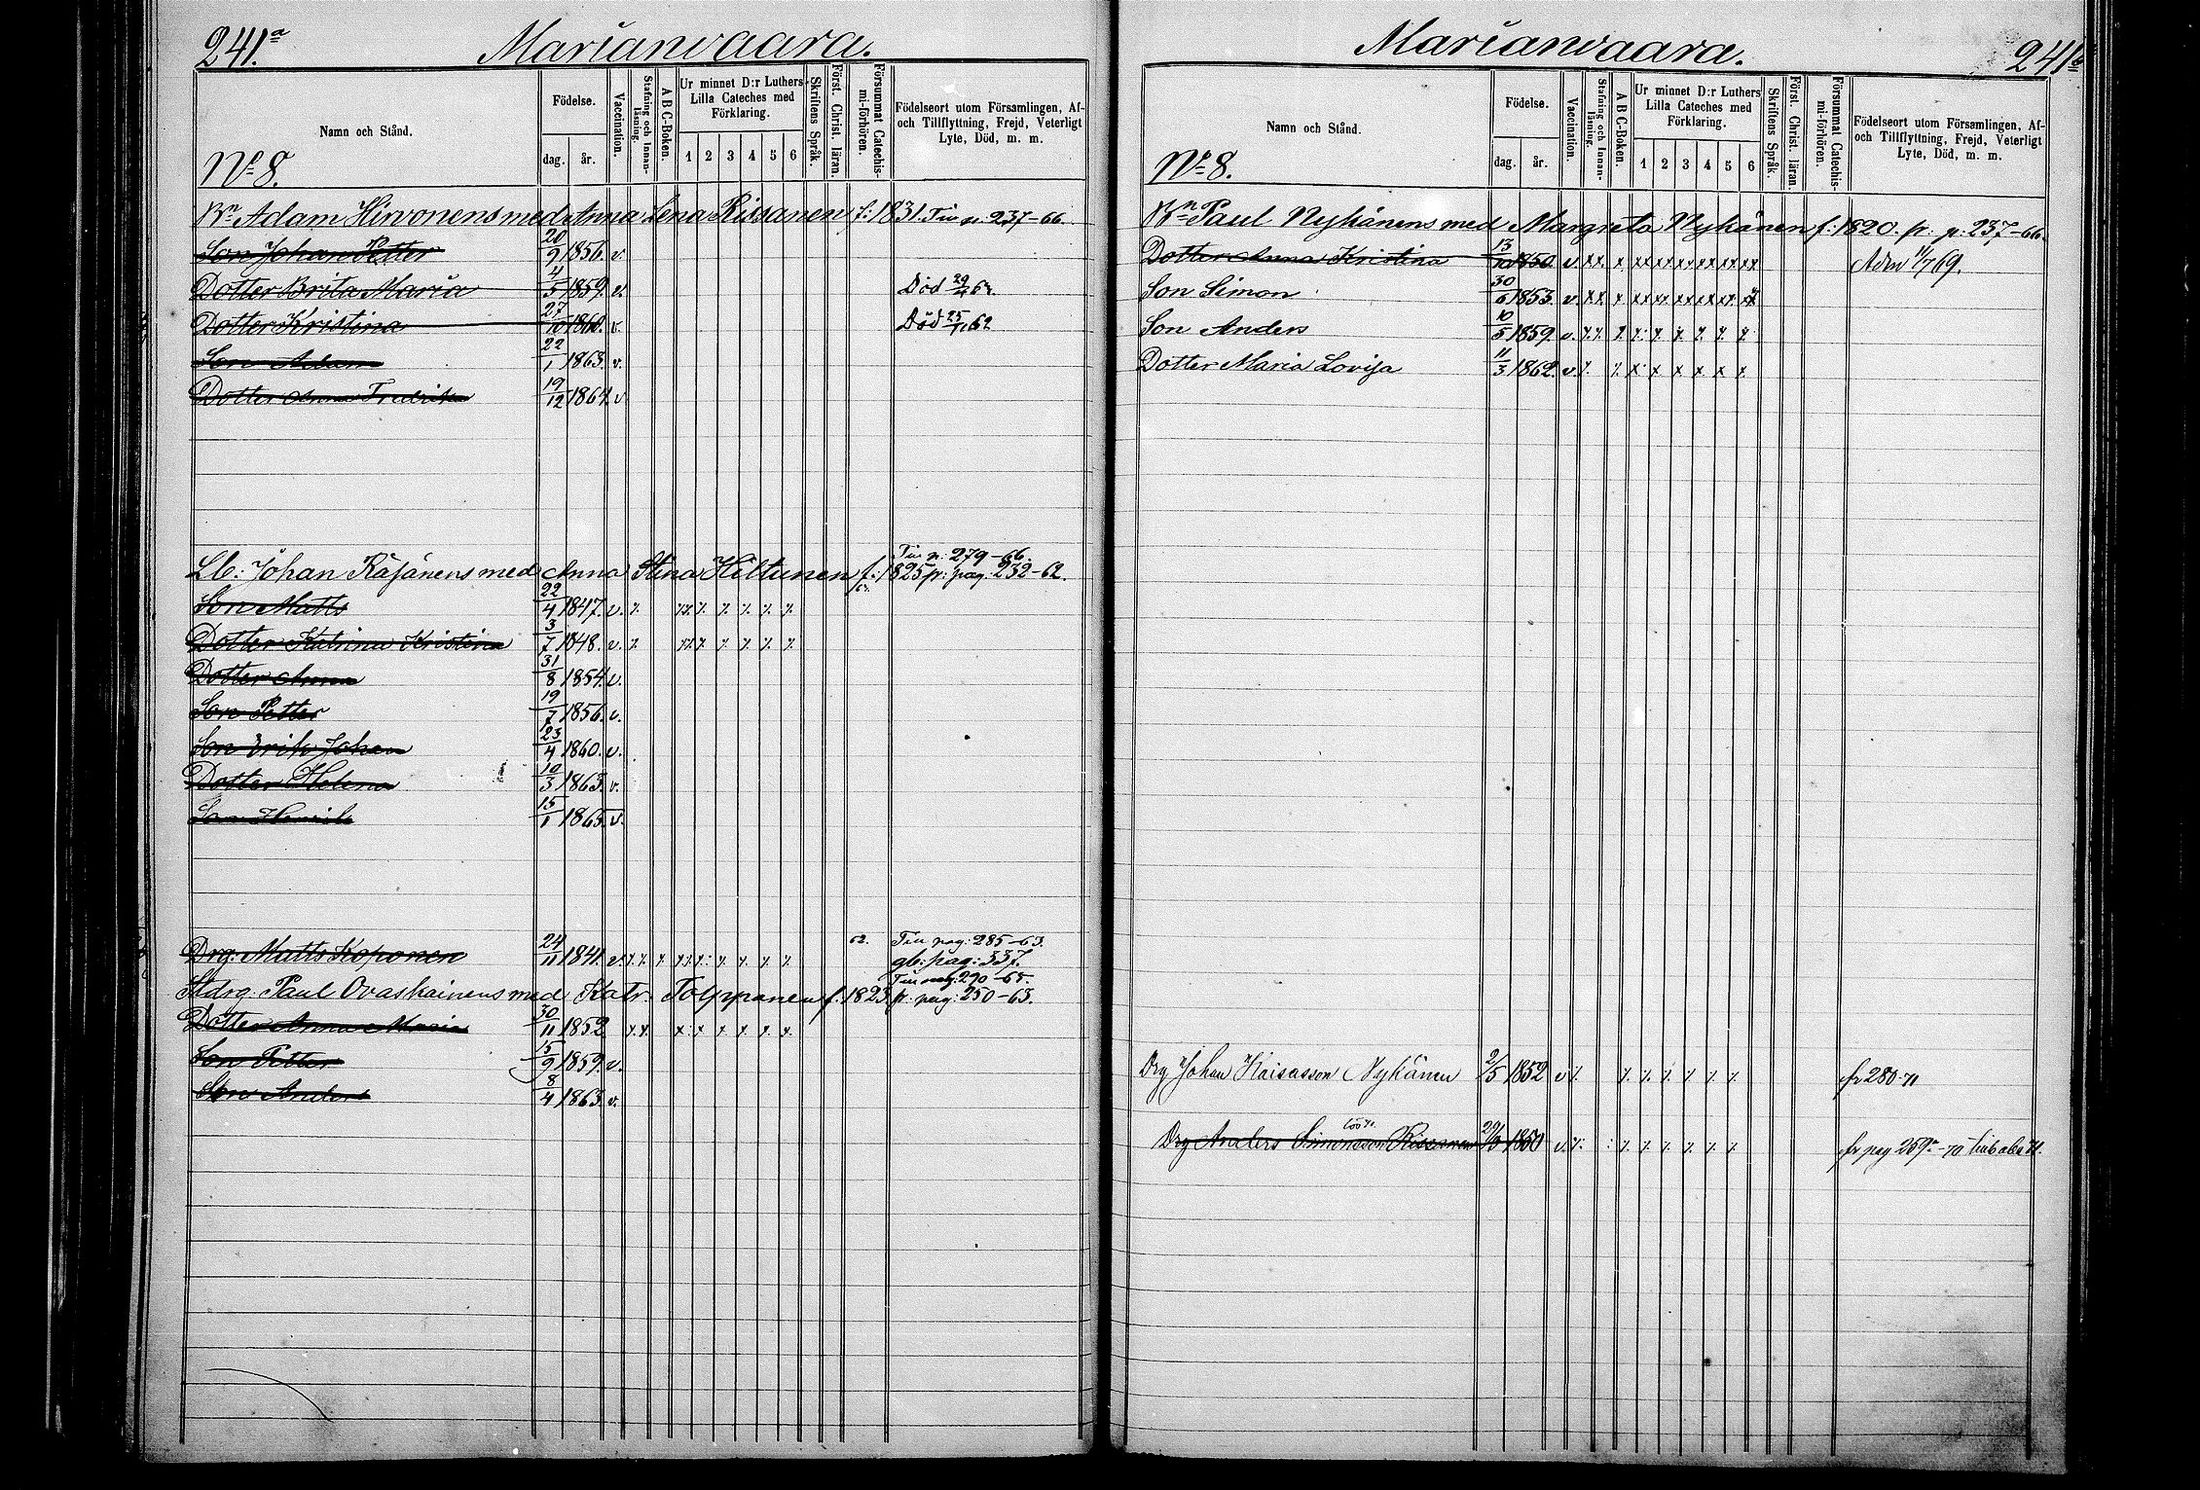 241.a
Marianvaara.
Namn och Stånd.
Födelse.
dag.
år.
Vaccination.
Stafning och Innanläsning.
A B C-Boken.
Ur minnet D:r Luthers
Lilla Cateches med
Förklaring.
1 2 3 4 5 6
Skriftens Språk.
Först. Christ. läran.
Försummat Catechismi-förhören.
Födelseort utom Församlingen, Af-
och Tillflyttning, Frejd, Veterligt
Lyte, Död, m. m.
No 8.
Bn Adam Hirvonens med Anna Lena Rissanen f: 1831. p: 237-66.
Son Johan Petter 20/9 1856. v.
Dotter Brita Maria 4/5 1859. v. Död
Dotter Kristina 27/10 1860. v. Död 25/ 62
Son Adam 22/1 1863. v.
Dotter Anna Fredrika 19/12 1864. v.
p: 279-66.
Lb: Johan Räjänens med Anna Stina Hiltunen f: 1825 fr: pag. 232-62.
Son Matts 22/4 1847. v. x xx x x x x x
Dotter Katrina Kristina 3/7 1848. v. x xx x x x x x
Dotter Anna 31/8 1854. v.
Son Petter 19/7 1856. v.
Son Erik Johan 23/4 1860. v.
Dotter Helena 10/3 1863. v.
Son Henrik 15/1 1865. v.
Drg: Matts Koponen 24/11 1841. v. x x x xx x x x x x 62. pag: 285-63.
gb: pag: 337.
pag: 290-65.
Stdrg: Paul Ovaskainens med Katr. Tolppanen f. 1823 fr. pag: 250-63.
Dotter Anna Maria 30/11 1852 x x x x x x x x
Son Petter 15/9 1859. v.
Son Anders 8/4 1863. v.
Marianvaara.
241b
Namn och Stånd.
Födelse.
dag.
år.
Vaccination.
Stafning och Innanläsning.
A B C-Boken.
Ur minnet D:r Luthers
Lilla Cateches med
Förklaring.
1 2 3 4 5 6
Skriftens Språk.
Först. Christ. läran.
Försummat Catechismi-förhören.
Födelseort utom Församlingen, Af-
och Tillflyttning, Frejd, Veterligt
Lyte, Död, m. m.
No 8.
Bn Paul Nykänens med Margreta Nykänen f: 1820. fr. p: 237-66.
Dotter Anna Kristina 13/10 1850. v. xx x xx xx xx xx xx xx 11/7 69.
Son Simon 30/6 1853. v. xx x xx xx xx xx xx xx
Son Anders 10/5 1859. v. x x x x x x x x x
Dotter Maria Lovisa 11/3 1862. v. x x x x x x x x
Drg Johan Kaisasson Nykänen 2/5 1852 v x x x x x x x fr 280-71
Drg Anders Simonsson Rissanen 1850 v. x x x x x x x fr pag 259a-70